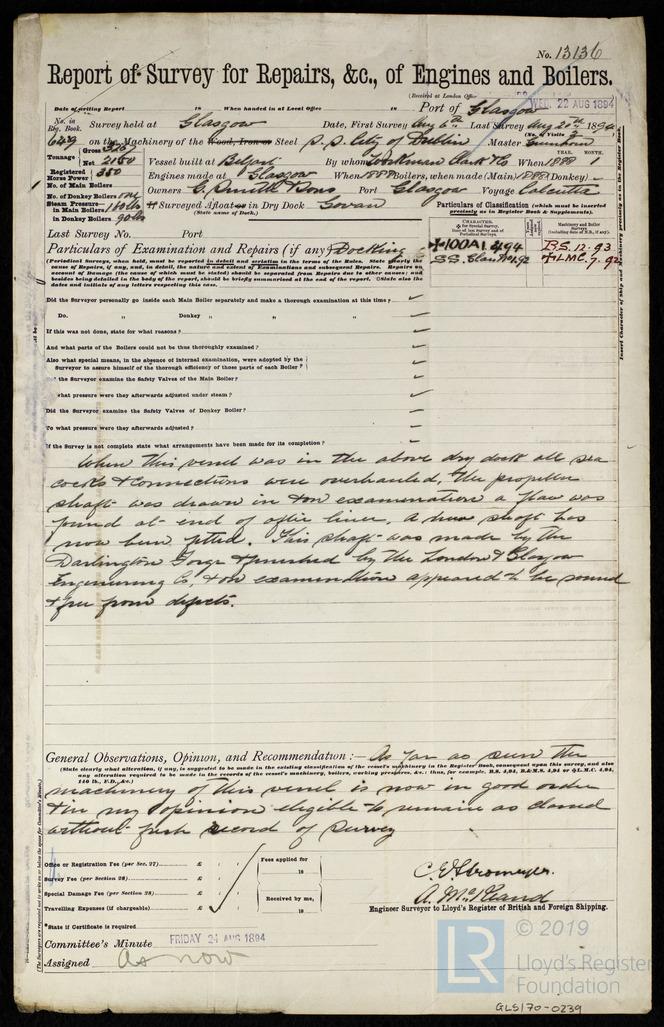 No. 13136
Report of Survey for Repairs, &c., of Engines and Boilers.
(Received at London Office WED. 22 AUG 1894
Date of writing Report 18 When handed in at Local Office 18 Port of Glasgow
No. in Reg. Book. Survey held at Glasgow Date, First Survey Aug 6th Last Survey Aug 20th 1894
649 on the Machinery of the Wood, Iron or Steel S.S. City of Dublin Master
Tonnage Gross Net 2150 Vessel built at Belfast By whom Workman Clark & Co When 1888 1
Registered Horse Power 350 Engines made at Glasgow When 1888 Boilers, when made (Main) 1888 (Donkey) –
No. of Main Boilers
No. of Donkey Boilers one Owners G. Smith & Sons Port Glasgow Voyage Calcutta
Steam Pressure in Main Boilers 160 lbs If Surveyed Afloat or in Dry Dock Govan
in Donkey Boilers 90 lbs (State name of Dock.)
Particulars of Classification (which must be inserted precisely as in Register Book & Supplements).
Last Survey No. Port
CHARACTER.
Machinery and Boiler Surveys
Particulars of Examination and Repairs (if any) Docking
+100A1 4.94 B.S. 12.93
S.S. Glas No 1.92 +LMC 7.92
(Periodical Surveys, when held, must be reported in detail and seriatim in the terms of the Rules. State clearly the cause of Repairs, if any, and, in detail, the nature and extent of Examinations and subsequent Repairs. Repairs on account of Damage (the cause of which must be stated) should be separated from Repairs due to other causes; and besides being detailed in the body of the report, should be briefly summarised at the end of the report. (State also the dates and initials of any letters respecting this case.
Did the Surveyor personally go inside each Main Boiler separately and make a thorough examination at this time?
Do. „ Donkey „ „ „
If this was not done, state for what reasons?
And what parts of the Boilers could not be thus thoroughly examined?
Also what special means, in the absence of internal examination, were adopted by the
Surveyor to assure himself of the thorough efficiency of those parts of each Boiler?
the Surveyor examine the Safety Valves of the Main Boiler?
what pressure were they afterwards adjusted under steam?
Did the Surveyor examine the Safety Valves of Donkey Boiler?
To what pressure were they afterwards adjusted?
If the Survey is not complete state what arrangements have been made for its completion?
When this vessel was in the above dry dock all sea
cocks & connections were overhauled, the propeller
shaft was drawn in & on examination a flaw was
found at end of after liner. A new shaft has
now been fitted. This shaft was made by the
Darlington Forge & finished by the London & Glasgow
Engineering Co. & on examination appeared to be sound
& free from defects.
General Observations, Opinion, and Recommendation:— As far as seen the
(State clearly what alteration, if any, is suggested to be made in the existing classification of the vessel's machinery in the Register Book, consequent upon this survey, and also
any alteration required to be made in the records of the vessel's machinery, boilers, working pressures, &c.: thus, for example, B.S. 4,94, B.&M.S. 4,94 or L.M.C. 4,94,
140 lb., F.D., &c.)
machinery of this vessel is now in good order
& in my opinion eligible to remain as classed
without fresh record of survey
Office or Registration Fee (per Sec. 27) £ : :
Fees applied for
18
Survey Fee (per Section 28) £ : :
Special Damage Fee (per Section 28) £ : :
Received by me,
18
Travelling Expenses (if chargeable) £ : :
C. E. Stromeyer
A. McKeand
Engineer Surveyor to Lloyd's Register of British and Foreign Shipping.
*State if Certificate is required
Committee's Minute FRIDAY 24 AUG 1894
Assigned As now
© 2019
LR Lloyd's Register
Foundation
GLS170-0239